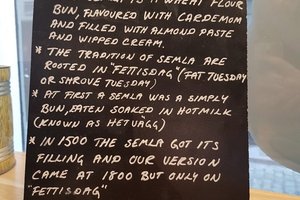 SEMLA IS A WHEAT FLOUR
BUN, FLAVOURED WITH CARDEMOM
AND FILLED WITH ALMOND PASTE
AND WIPPED CREAM.
* THE TRADITION OF SEMLA ARE
ROOTED IN "FETTISDAG" (FAT TUESDAY
OR SHROVE TUESDAY)
* AT FIRST A SEMLA WAS A SIMPLY
BUN, EATEN SOAKED IN HOTMILK
(KNOWN AS HETVÄGG)
* IN 1500 THE SEMLA GOT ITS
FILLING AND OUR VERSION
CAME AT 1800 BUT ONLY ON
"FETTISDAG"